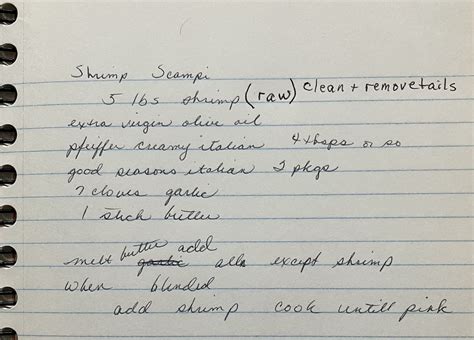 Shrimp Scampi
5 lbs shrimp (raw) clean + remove tails
extra virgin olive oil
pfeiffer creamy italian 4 tbsps or so
good seasons italian 2 pkgs
7 cloves garlic
1 stick butter
melt butter add garlic alla except shrimp
when blended
add shrimp cook untill pink